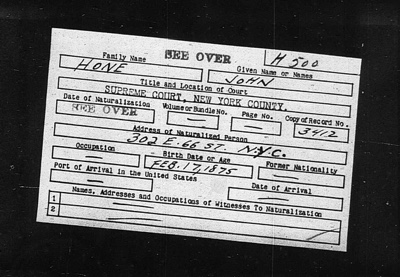 SEE OVER H 500
Family Name Given Name or Names
HONE JOHN
Title and Location of Court
SUPREME COURT, NEW YORK COUNTY.
Date of Naturalization Volume or Bundle No. Page No. Copy of Record No.
SEE OVER — — 3412
Address of Naturalized Person
302 E. 66 ST. N.Y.C.
Occupation Birth Date or Age Former Nationality
— FEB. 17, 1875 —
Port of Arrival in the United States Date of Arrival
— —
Names, Addresses and Occupations of Witnesses To Naturalization
1 —
2